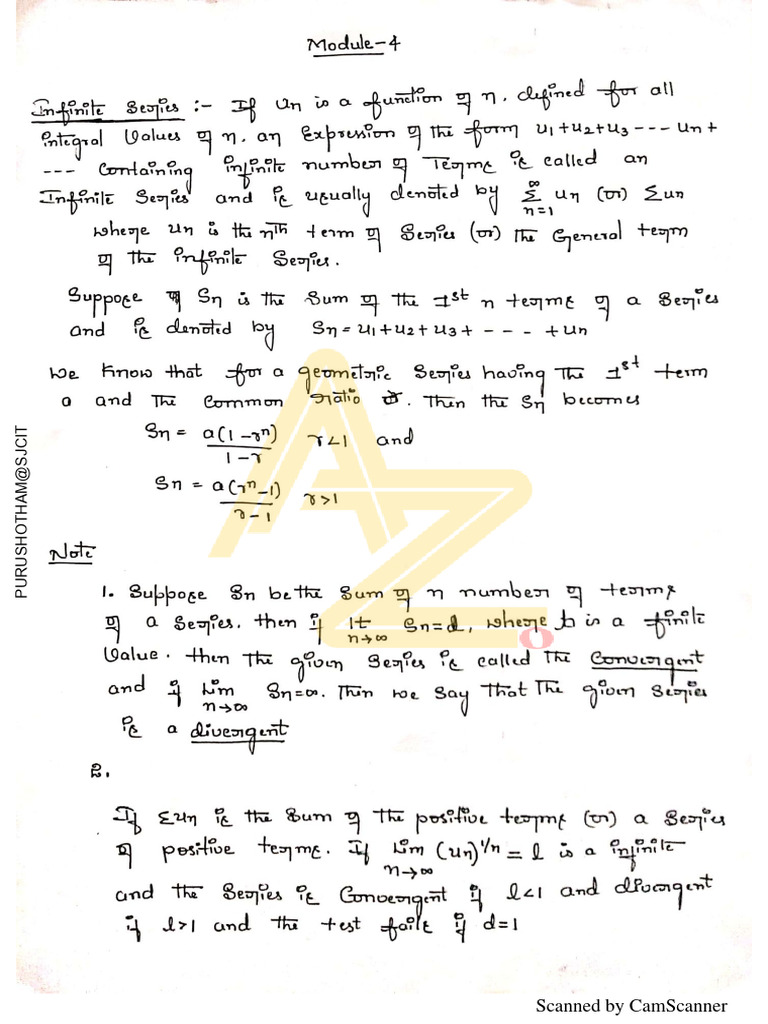 Module-4
Infinite Series :- If Un is a function of n. defined for all
integral Values of n. an Expression of the form u1+u2+u3 --- un+
--- Containing infinite number of Terms is called an
Infinite Series and is usually denoted by ∞Σn=1 un (or) Σun
where un is the nth term of Series (or) The General term
of the infinite Series.
Suppose Sn is the Sum of the 1st n terms of a Series
and is denoted by Sn = u1+u2+u3+ - - - + un
We Know that for a geometric Series having The 1st term
a and The Common ratio r. Then the Sn becomes
Sn = a(1-rⁿ)/1-r r<1 and
Sn = a(rⁿ-1)/r-1 r>1
Note
1. Suppose Sn be the Sum of n number of terms
of a Series. then if lt n→∞ Sn=l, where l is a finite
Value. then The given Series is called The Convergent
and if Lim n→∞ Sn=∞. Then we say That The given Series
is a divergent
2.
If Σun is the Sum of The positive terms (or) a Series
of positive terms. If Lim n→∞ (un)^1/n = l is a infinite
and the Series is Convergent if l<1 and divergent
if l>1 and the test fails if d=1
PURUSHOTHAM@SJCIT
AZ
O
Scanned by CamScanner